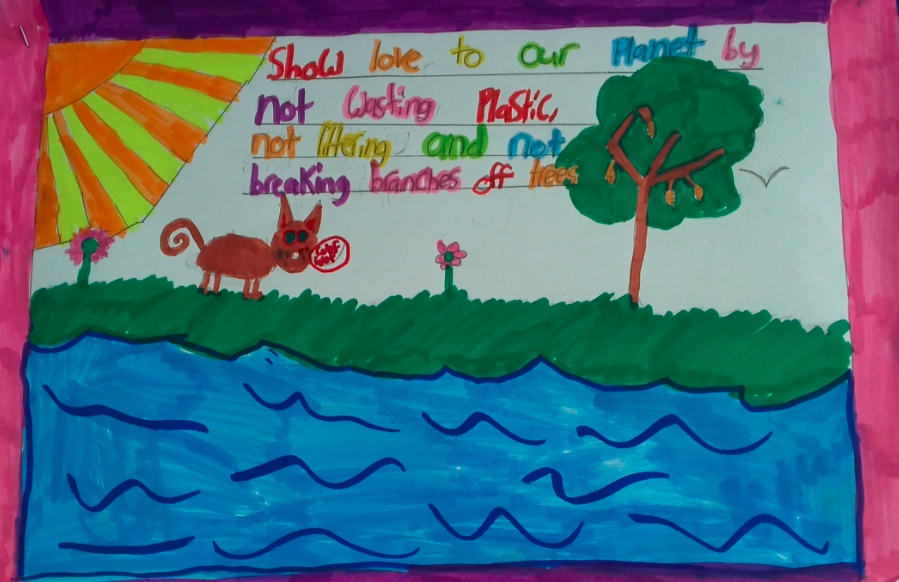 Show love to our Planet by
not Wasting Plastic,
not littering and not
breaking branches off trees
woof